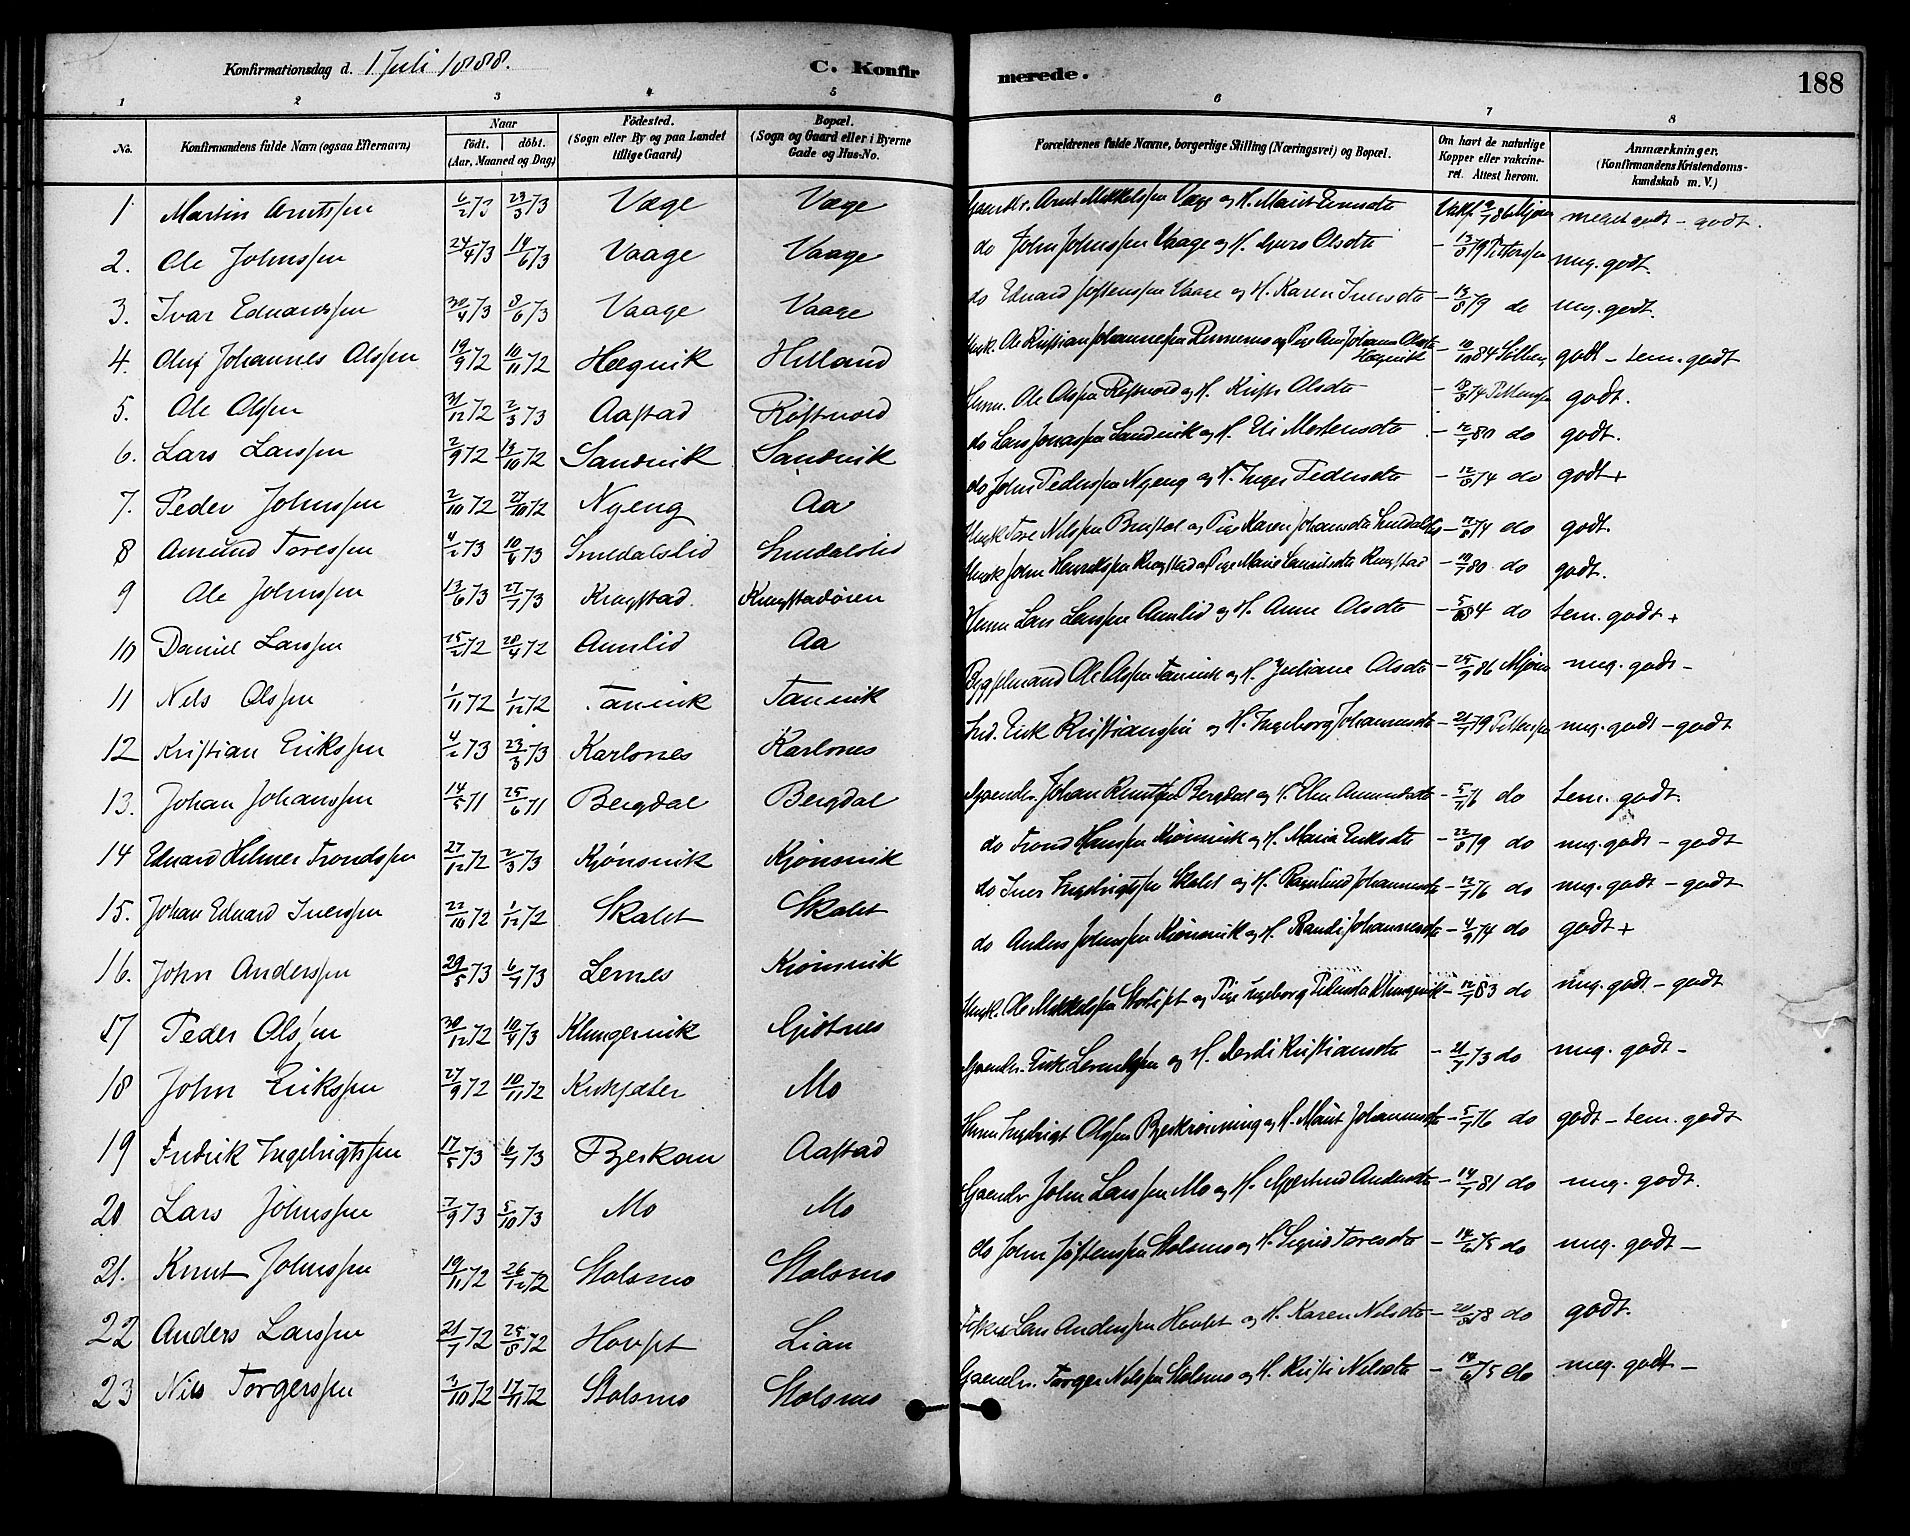 Konfirmationsdag d. 1 Juli 1888. C. Konfir merede. 188
1 2 3 4 5 6 7 8
No. Konfirmandens fulde Navn (ogsaa Efternavn) Naar født. døbt. (Aar, Maaned og Dag) Födested. (Sogn eller By og paa Landet tillige Gaard) Bopæl. (Sogn og Gaard eller i Byerne Gade og Hus-No. Forældrenes fulde Navne, borgerlige Stilling (Næringsvei) og Bopæl. Om havt de naturlige Kopper eller vakcineret. Attest herom. Anmærkninger. (Konfirmandens Kristendomskundskab m. V.)
1 Martin Arntssen 6/2 73 23/3 73 Vaage Vaage Gaardbr. Arnt Mikkelssen Vaage og H. Marit meget godt - godt.
2. Ole Johnssen 24/4 73 14/6 73 Vaage Vaage do John Johnssen Vaage og H. Guro Olsdtr - 13/8 79 Pettersen mg. godt.
3. Ivar Eduardssen 30/4 73 8/6 73 Vaage Vaage do Eduard Jøstenssen Vaage og H. Karen Iversdtr - 13/8 79 do mg. godt.
4. Oluf Johannes Olssen 19/9 72 10/11 72 Hægvik Hilland Ole Kristian Johannessen og Pige Ane Johanna Olsdtr Hægvik - 10/10 84 godt - tem. godt
5. Ole Olssen 31/12 72 2/3 73 Aastad Røstvold Husm. Ole Olssen og H. Kirsti Olsdtr - 18/8 74 Pettersen godt.
6. Lars Larssen 2/9 72 13/10 72 Sandvik Sandvik do Lars Jonassen Sandvik og H. Eli Mortensdtr - 12/7 80 do godt.
7. Peder Johnssen 2/10 72 27/10 72 Nyeng Aa do John Pederssen Nyeng og H. Inger Pedersdtr - 12/8 74 do godt +
8 Amund Toressen 4/2 73 10/4 73 Smedalslid Smedalslid Tore Nilssen og Pige Karen Johansdtr Smedalslid - 12/8 74 do godt.
9 Ole Johnssen 13/6 73 27/7 73 Krogstad Krogstadøren John Henrikssen Krogstad og Pige Marie Krogstad - 10/7 80 do godt.
10 Daniel Larssen 25/2 72 28/4 72 Aunlid Aa Husm Lars Larssen Aunlid og H. Anne Olsdtr - 5/8 84 do tem. godt +
11 Nils Olssen 1/11 72 1/12 72 Tannvik Tannvik Bygselmand Ole Olssen Tannvik og H. Juliane Olsdtr - 25/9 86 mg. godt -
12 Kristian Erikssen 4/2 73 23/3 73 Karlsnes Karlsnes Ind. Erik Kristianssen og H. Ingeborg Johannesdtr - 21/7 79 Pettersen mg. godt - godt
13. Johan Johanssen 14/5 71 25/6 71 Bergdal Bergdal Gaardbr. Johan Knutssen Bergdal og H. Elen Amundsdtr - 5/7 76 do tem. godt.
14 Eduard Hilmer Trondssen 27/12 72 2/3 73 Kjønsvik Kjønsvik do Trond Hanssen Kjønsvik og H. Maria Eriksdtr - 22/8 79 do mg. godt - godt
15. Johan Eduard Iverssen 22/10 72 1/12 72 Skalet Skalet do Iver Ingebrigtssen Skalet og H. Johannesdtr - 12/7 76 do mg. godt - godt
16. John Anderssen 29/5 73 6/7 73 Lernes Kjønsvik do Anders Johnssen Kjønsvik og H. Randi Johannesdtr - 4/9 74 do godt +
17 Peder Olssen 30/12 72 10/4 73 Klungervik Gjetnes Ole Mikkelssen og Pige Ingeborg Pedersdtr Klungervik - 12/7 83 do mg. godt - godt
18 John Erikssen 27/9 72 10/11 72 Kirksæter Mo Gaardbr. Erik og H. Kristiansdtr - 21/7 73 do mg. godt -
19 Fredrik Ingebrigtssen 17/5 73 6/7 73 Bjerkan Aastad Husm Ingebrigt Olssen og H. Marit Johannesdtr - 5/7 76 do godt - tem. godt
20 Lars Johnssen 7/9 73 5/10 73 Mo Mo Gaardbr John Larssen Mo og H. Gjertrud Andersdtr - 14/7 81 do mg. godt.
21. Knut Johnssen 19/11 72 26/12 72 Stolsmo Stolsmo do John Jøstenssen Stolsmo og H. Sigrid Toresdtr - 14/6 75 do mg. godt -
22 Anders Larssen 21/7 72 25/8 72 Hovset Lian Fisker Lars Anderssen Hovset og H. Karen Nilsdtr - 20/8 78 do godt.
23 Nils Torgerssen 3/10 72 17/11 72 Stolsmo Stolsmo Gaardbr. Torger Nilssen Stolsmo og H. Kirsti Nilsdtr - 14/6 75 do mg. godt -